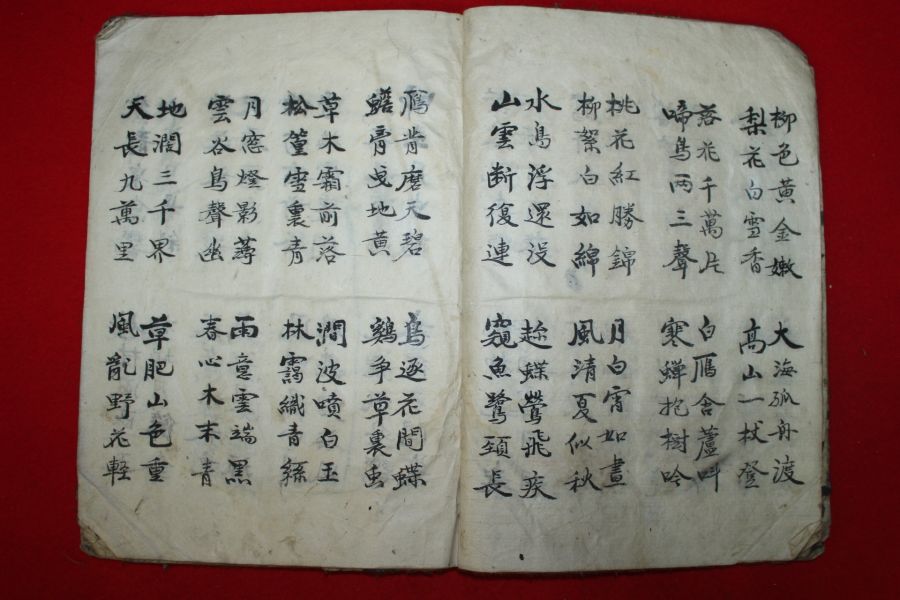 柳色黃金嫩
梨花白雪香
大海孤舟渡
高山一杖登
落花千萬片
啼鳥兩三聲
白雁含蘆叫
寒蟬抱樹吟
桃花紅勝錦
柳絮白如綿
月白宵如晝
風清夏似秋
水鳥浮還沒
山雲断復連
趂蝶鶯飛疾
窺魚鷺頚長
鴈背磨天碧
鰲脊戛地黃
鳥逐花間蝶
鷄爭草裏虫
草木霜前落
松篁雪裏青
澗波噴白玉
林靄織青絲
月窓燈影薄
雲谷鳥聲幽
雨意雲端黑
春心木末青
地濶三千界
天長九萬里
草肥山色重
風亂野花軽